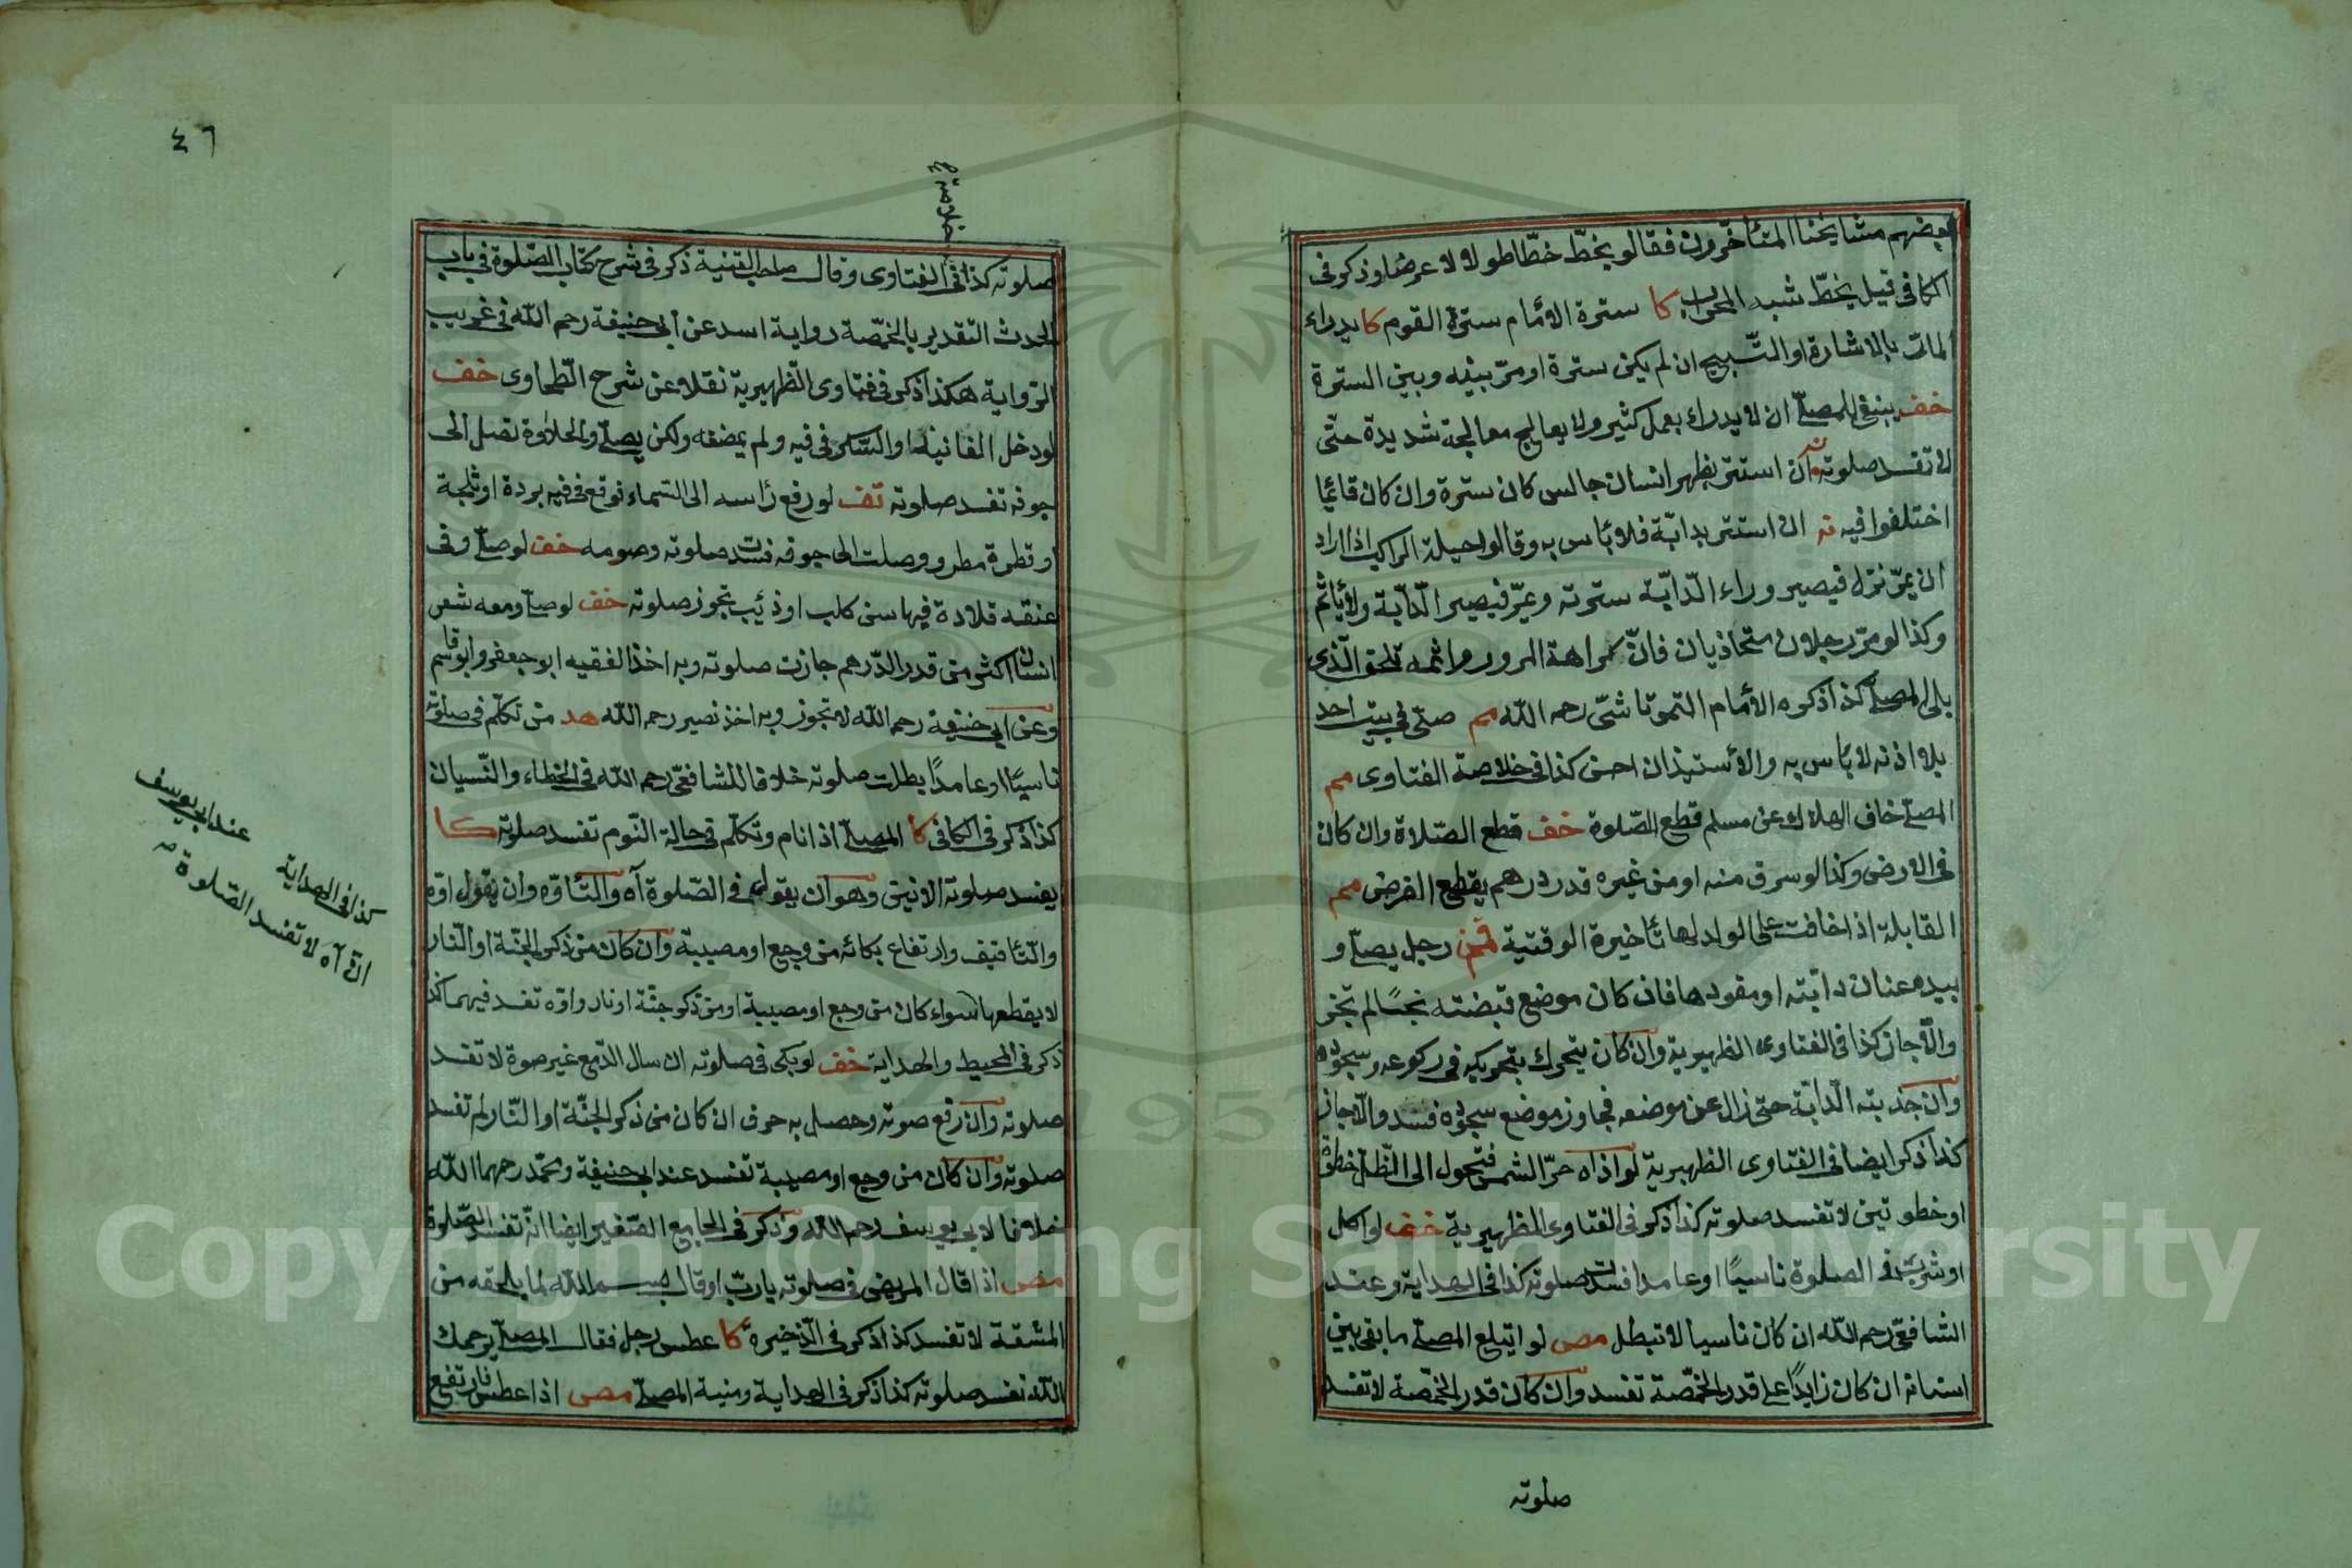 بعضهم مشايخنا المتأخرون فقالو يخطّ خطّا طولا لا عرضا وذكر فى
الكافى قيل يخطّ شبه المحراب كا سترة الامام سترة القوم كا يدراء
المات بالاشارة او التسبيح ان لم يكن سترة او مرّ بينه وبين السترة
خف ينبغى للمصلى ان لا يدراء بعمل كثير ولا يعالج معالجة شديدة حتى
لا تفسد صلوته وان استتر بظهر انسان جالس كان سترة وان كان قائما
اختلفوا فيه نه ان استتر بدابّة فلا بأس به وقالوا حيلة الراكب اذا اراد
ان يمرّ نزل فيصير وراء الدّابّة سترته ويمرّ فيصير الدّابّة ولا يأثم
وكذا لو مرّ رجلان متحاذيان فانّ كراهة المرور واثمه تلحق الّذى
يلى المصلى كذا ذكره الامام التمرتاشى رحمه اللّه مم صلّى فى بيت احد
بلا اذنه لا بأس به والاستيذان احسن كذا فى خلاصة الفتاوى مم
المصلى خاف الهلاك عن مسلم قطع الصّلوة خف قطع الصّلاة وان كان
فى الارض وكذا لو سرق منه او من غيره قدر درهم يقطع الفرض مم
القابلة اذا خافت على الولد لها تأخيرة الوقتية قمن رجل يصلى و
بيده عنان دابّته او مقودها فان كان موضع قبضته نجسًا لم تجز
والّا جاز كذا فى الفتاوى الظهيرية وان كان يتحرك بتحريكه فى ركوعه وسجوده
وان جذبته الدّابّة حتى زال عن موضعه فجاوز موضع سجوده فسد والّا جاز
كذا ذكر ايضا فى الفتاوى الظهيرية لو اذاه حرّ الشمس فتحول الى الظّل خطوة
او خطوتين لا تفسد صلوته كذا ذكر فى الفتاوى الظهيرية خف لو اكل
او شرب فى الصلوة ناسيًا او عامدا فسدت صلوته كذا فى الهداية وعند
الشافعى رحمه اللّه ان كان ناسيا لا تبطل مص لو ابتلع المصلى ما بقى بين
اسنانه ان كان زايدًا على قدر الحمّصة تفسد وان كان قدر الحمّصة لا تفسد
صلوته
٤٦
صلوته كذا فى الفتاوى وقال صاحب القنية ذكر فى شرح كتاب الصّلوة فى باب
الحدث التّقدير بالحمّصة رواية اسد عن ابى حنيفة رحمه اللّه فى غريب
الرّواية هكذا ذكر فى فتاوى الظّهيرية نقلا عن شرح الطّحاوى خف
لو دخل الفانيذ او السّكر فى فيه ولم يمضغه ولكن يصلى والحلاوة تصل الى
جوفه تفسد صلوته تف لو رفع رأسه الى السّماء فوقع فى فيه بردة او ثلجة
او قطرة مطر ووصلت الى جوفه فسدت صلوته وصومه خف لو صلى وفى
عنقه قلادة فيها سن كلب او ذئب تجوز صلوته خف لو صلى ومعه شعر
انسان اكثر من قدر الدّرهم جازت صلوته وبه اخذ الفقيه ابو جعفر وابو قاسم
وعن ابى حنيفة رحمه اللّه لا تجوز وبه اخذ نصير رحمه اللّه هد من تكلّم فى صلوته
ناسيًا او عامدًا بطلت صلوته خلافا للشافعىّ رحمه اللّه فى الخطاء والنّسيان
كذا ذكر فى الكافى كا المصلى اذا نام وتكلّم فى حالة النّوم تفسد صلوته كا
يفسد صلوته الانين وهو ان يقول فى الصّلوة آه والتّأوّه وان يقول اوّه
والتّأفيف وارتفاع بكائه من وجع او مصيبة وان كان من ذكر الجنّة او النّار
لا يقطعها سواء كان من وجع او مصيبة او من ذكر جنّة او نار واوّه تفسد فيهما كذا
ذكر فى المحيط والهداية خف لو بكى فى صلوته ان سال الدّمع غير صوة لا تفسد
صلوته وان رفع صوته وحصل به حرف ان كان من ذكر الجنّة او النّار لم تفسد
صلوته وان كان من وجع او مصيبة تفسد عند ابى حنيفة ومحمّد رحمهما اللّه
خلافا لابى يوسف رحمه اللّه وذكر فى الجامع الصّغير ايضا انّه تفسد الصّلوة
مص اذا قال المريض فى صلوته يا ربّ او قال بسم اللّه لما يلحقه من
المشقة لا تفسد كذا ذكر فى الذّخيرة كا عطس رجل فقال المصلى يرحمك
اللّه تفسد صلوته كذا ذكر فى الهداية ومنية المصلى مص اذا عطس فارتفع
عند ابى يوسف
كذا فى الهداية
انّ آه لا تفسد الصّلوة
Copyright © King Saud University
1957